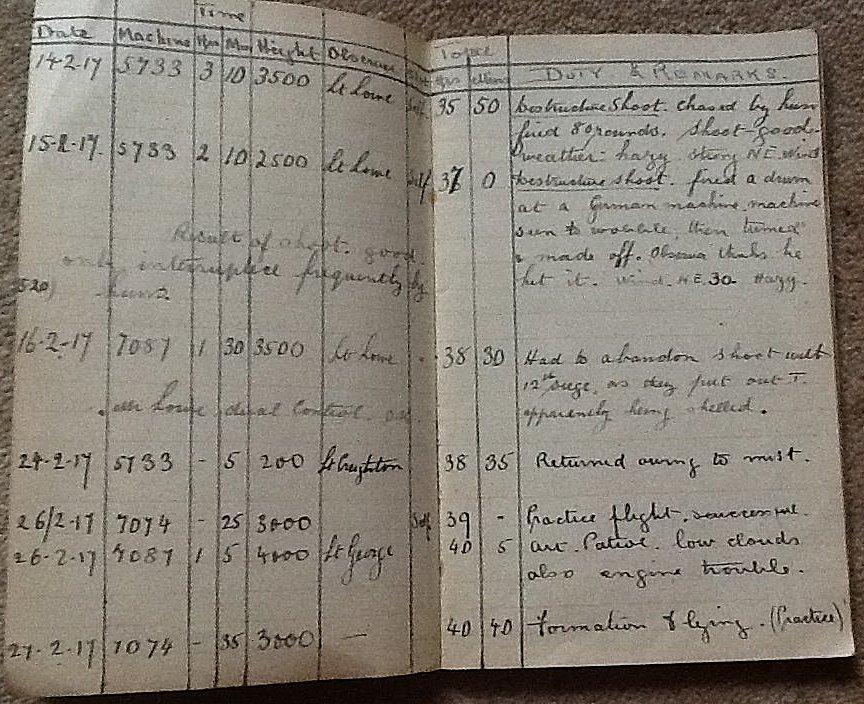 Time
Date Machine Hrs Min Height Observer
14-2-17 5733 3 10 3500 Lt Lowe self
15-2-17. 5733 2 10 2500 Lt Lowe self
Result of shoot. good.
only interrupted frequently by
huns.
16-2-17 7087 1 30 3500 Lt Lowe
Lowe dual Control.
24-2-17 5733 - 5 200 Lt Creighton
26/2-17 7074 - 25 3000 self
26-2-17 7087 1 5 4000 Lt George
27-2-17 7074 - 35 3000 —
Total
Hrs Mins DUTY & REMARKS.
35 50 Destructive Shoot. chased by hun
fired 80 rounds. Shoot-good-
weather- hazy strong N.E. Wind
37 0 Destructive shoot. fired a drum
at a German machine, machine
seen to wobble, then turned
& made off. Observer thinks he
hit it. Wind. N.E. 30. Hazy.
38 30 Had to abandon shoot with
12th siege, as they put out T.
apparently being shelled.
38 35 Returned owing to mist.
39 - Practice flight. successful.
40 5 Art. Patrol. low clouds
also engine trouble.
40 40 Formation flying. (Practice)